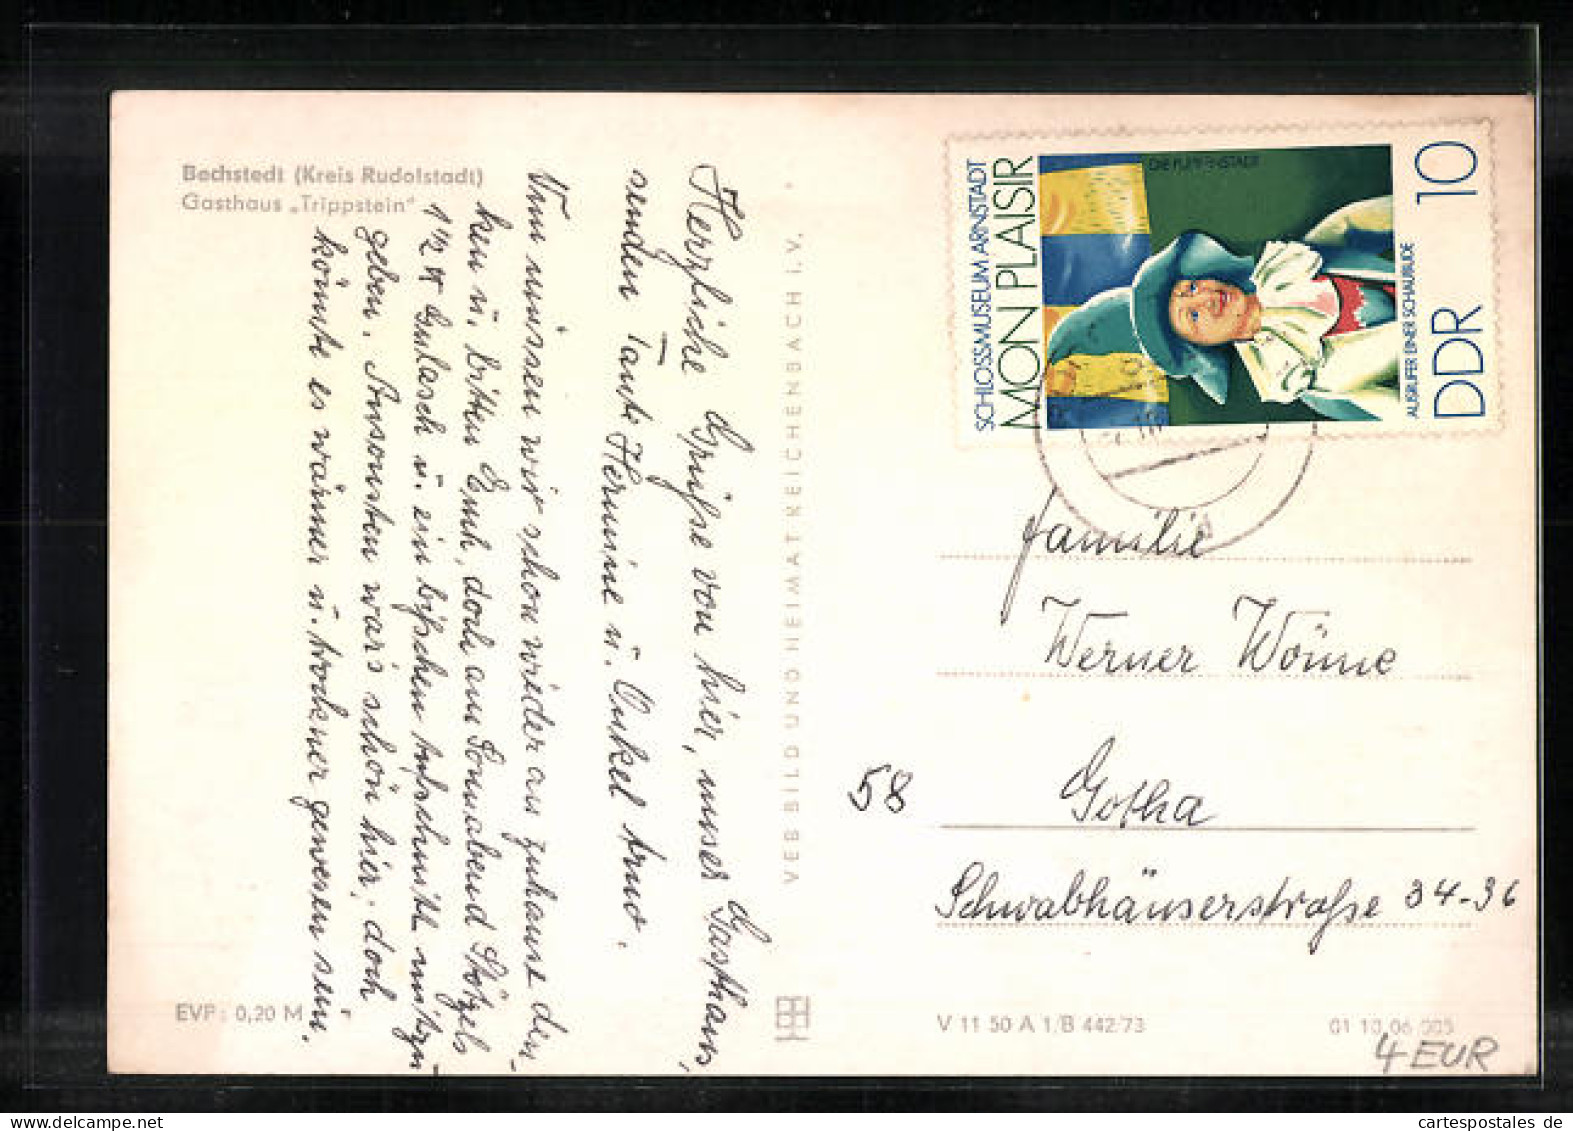 Bechstedt (Kreis Rudolstadt)
Gasthaus „Trippstein"
Herzliche Grüße von hier, unser Gasthaus,
senden Tante Hermine u. Onkel
Nun müssen wir schon wieder an zuhause den-
ken u. bitten Euch, doch am Sonnabend Stötzels
1 1/2 Gulasch u. ein bißchen mitzu-
geben. Ansonsten war's schön hier, doch
könnte es wärmer u. trockner gewesen sein.
EVP: 0,20 M
VEB BILD UND HEIMAT REICHENBACH I. V.
SCHLOSSMUSEUM ARNSTADT
MON PLAISIR
DIE PUPPENSTADT
AUSRUFER EINER SCHAUBUDE
DDR 10
Familie
Werner Wönne
58 Gotha
Schwabhäuserstraße 34-36
V 11 50 A 1/B 442/73
01 10 06 005
4 EUR
cartespostales de